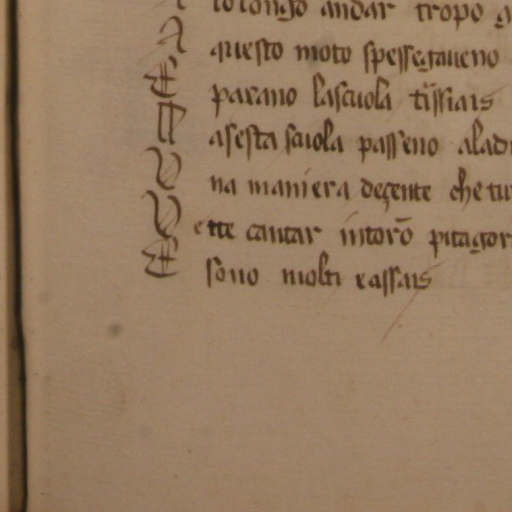 lolongo andar tropo
A questo moto spessegaueno
E parano lascuola tissiais
P asesta scuola passeno alad
U na maniera deçente che tu
U ette cantar intorō pitagor
E sono molti eassais